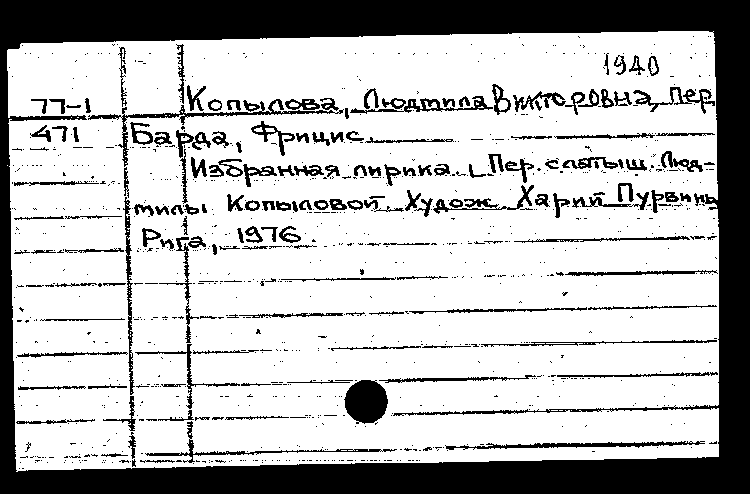 1940
77-1 Копылова, Людмила Викторовна, пер.
471 Барда, Фрицис.
Избранная лирика. [Пер. с латыш. Люд-
милы Копыловой. Худож. Харий Пурвинь
Рига, 1976.